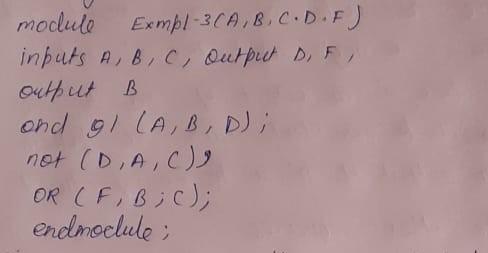 module Exmpl-3(A, B, C. D. F)
inputs A, B, C, Output D, F,
output B
and g1 (A, B, D);
not (D, A, C),
OR (F, B ; C);
endmodule ;